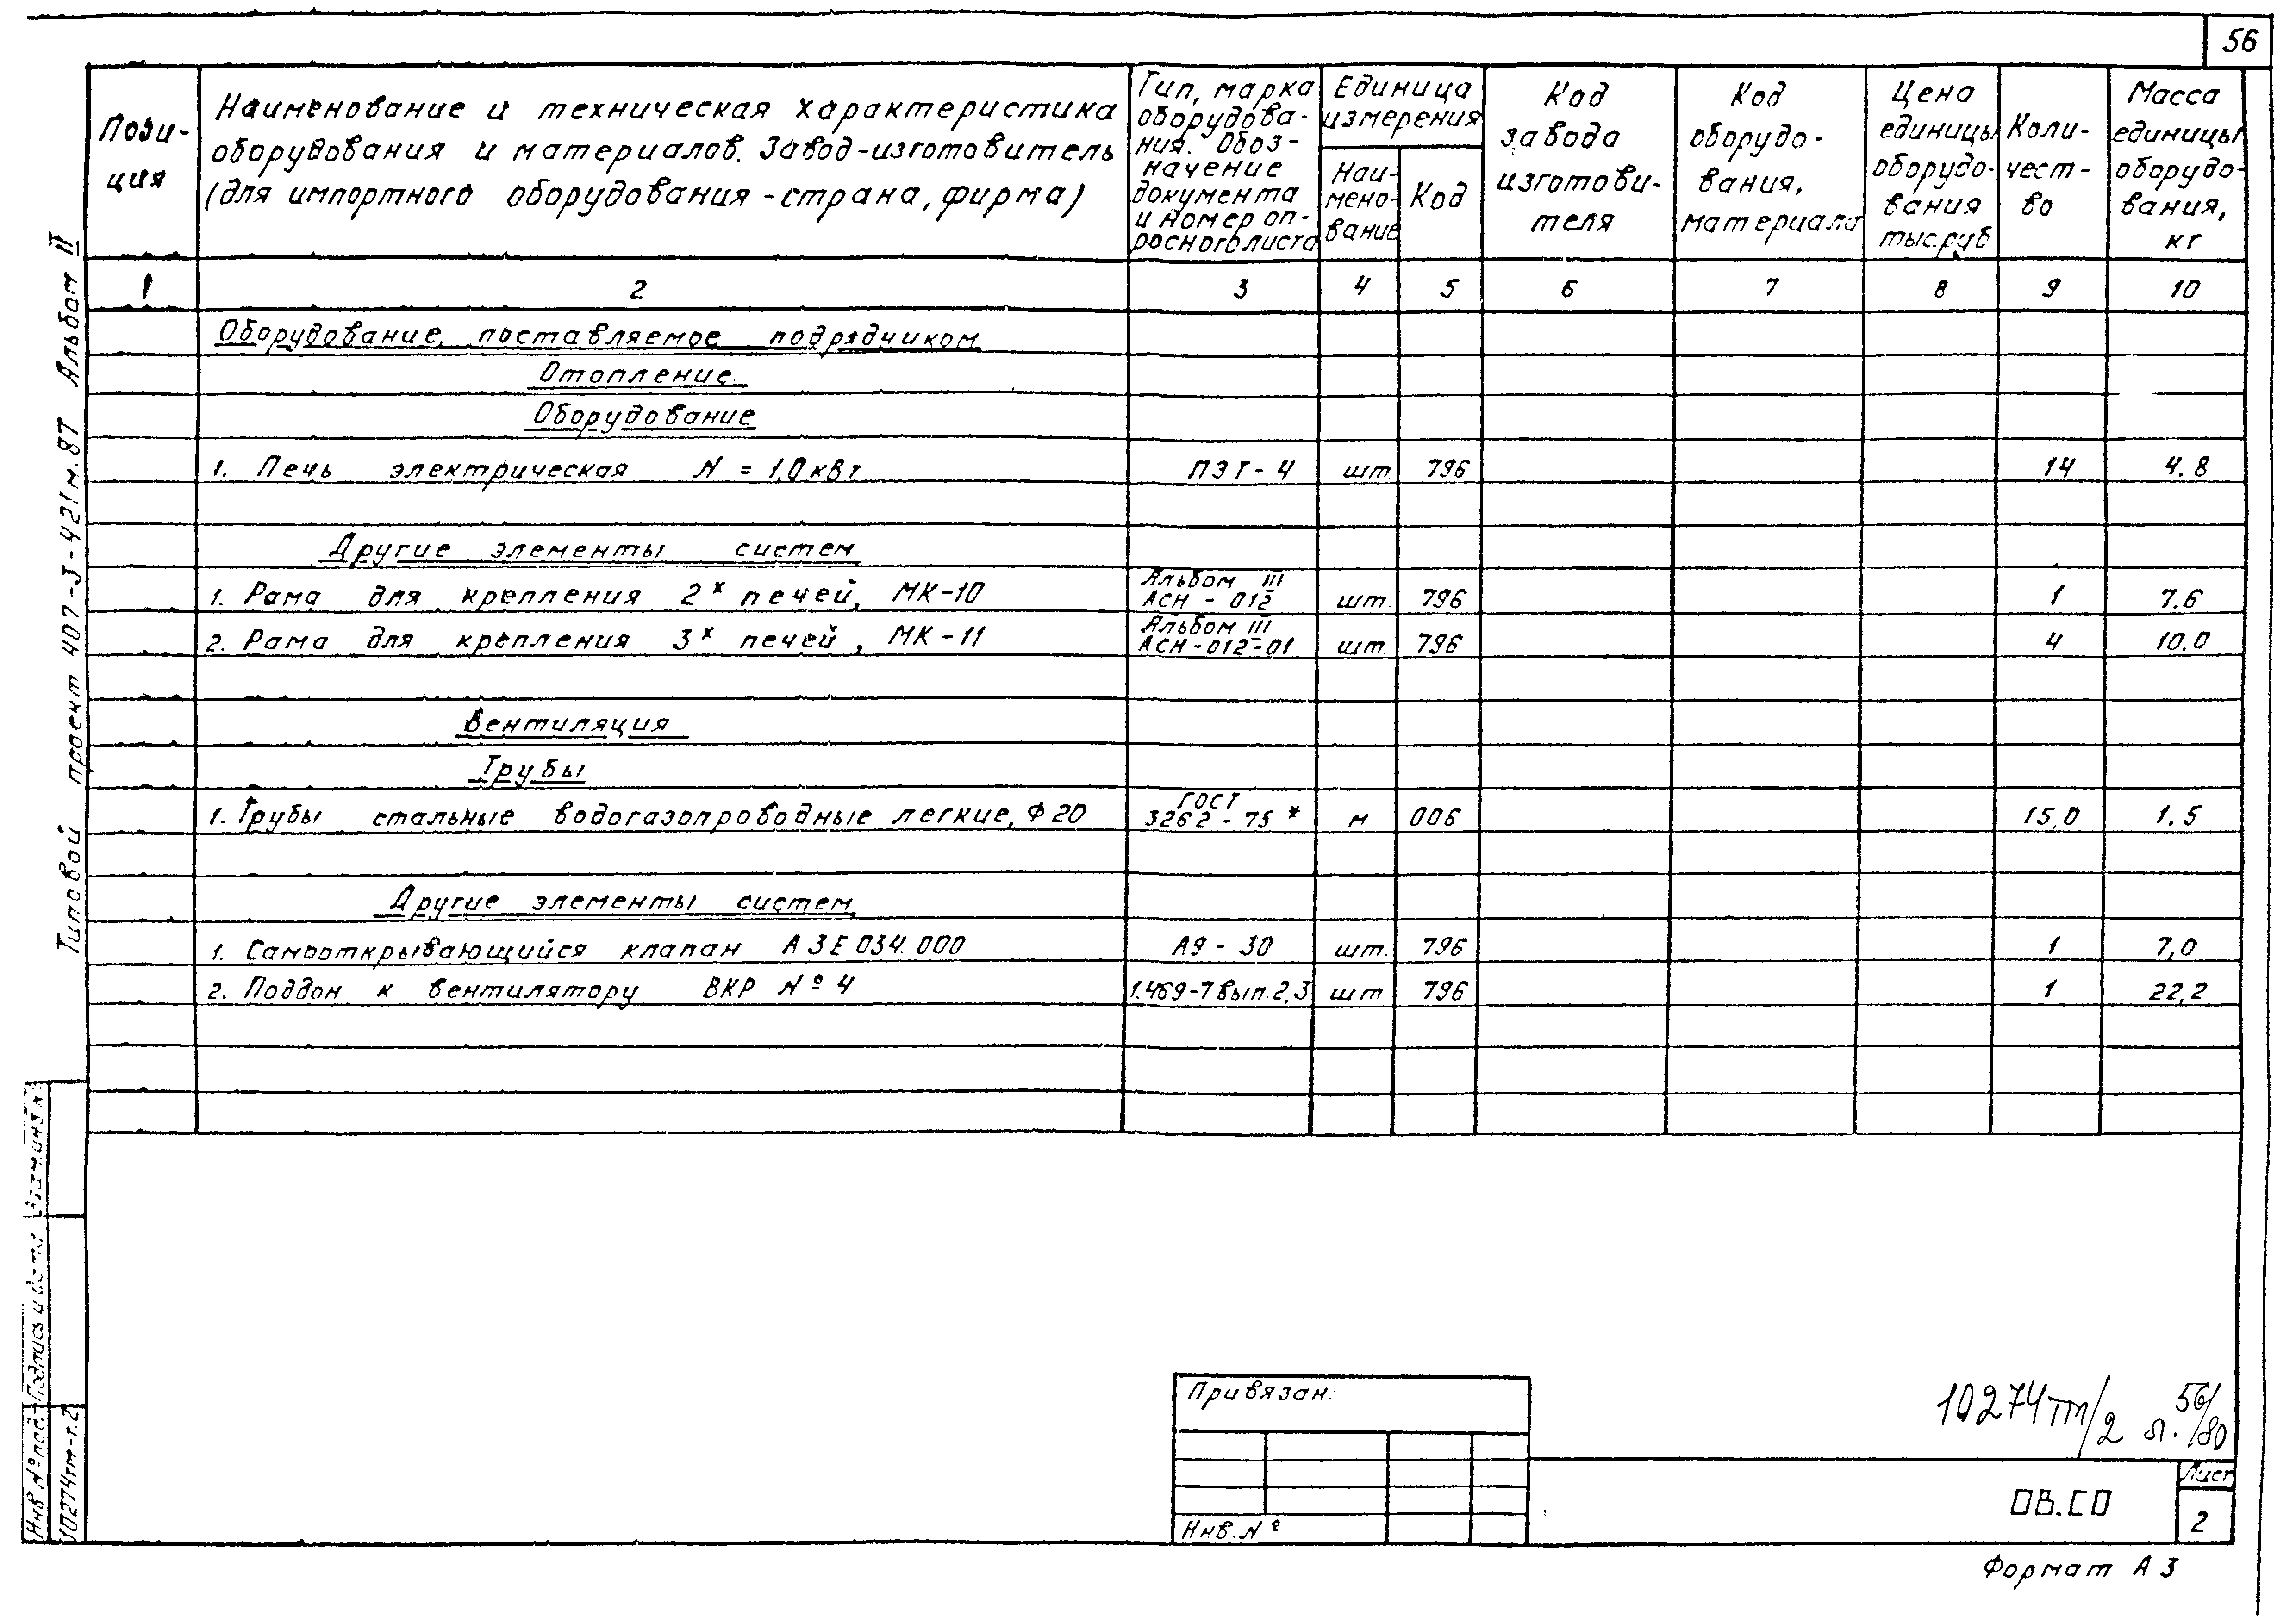 56
Пози-
ция
Наименование и техническая характеристика
оборудования и материалов. Завод-изготовитель
(для импортного оборудования-страна, фирма)
Тип, марка
оборудова-
ния. Обоз-
начение
документа
и номер оп-
росного листа
Единица
измерения
Наи-
мено-
вание
Код
Код
завода
изготови-
теля
Код
оборудо-
вания,
материала
Цена
единицы
оборудо-
вания
тыс.руб
Коли-
чест-
во
Масса
единицы
оборудо-
вания,
кг
1 2 3 4 5 6 7 8 9 10
Оборудование, поставляемое подрядчиком
Отопление.
Оборудование
1. Печь электрическая N = 1,0 кВт ПЭТ-4 шт. 796 14 4.8
Другие элементы систем
1. Рама для крепления 2х печей, МК-10 Альбом III АСН - 012 шт. 796 1 7.6
2. Рама для крепления 3х печей, МК-11 Альбом III АСН-012-01 шт. 796 4 10.0
Вентиляция
Трубы
1. Трубы стальные водогазопроводные легкие, Ф 20 ГОСТ 3262 - 75 * м 006 15,0 1.5
Другие элементы систем
1. Самооткрывающийся клапан АЗЕ 034.000 А9 - 30 шт. 796 1 7,0
2. Поддон к вентилятору ВКР № 4 1.469-7 вып.2,3 шт 796 1 22,2
Типовой проект 407-3-421м.87 Альбом II
Инв № подл. Подпись и дата
10274тм-т.2
Привязан:
Инв. №
10274тм/2 л. 56/80
ОВ.СО
Лист
2
Формат А3